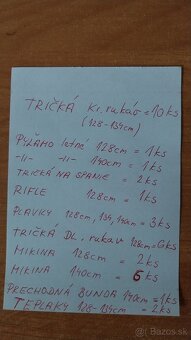 TRIČKÁ Kr. rukáv = 10 ks
(128-134cm)
PYŽAMO letné 128cm = 1ks
-11- -11- 140cm = 1ks
TRIČKÁ NA SPANIE = 2ks
RIFLE 128cm = 1ks
PLAVKY 128cm, 134, 140cm = 3ks
TRIČKÁ DL. rukav 128cm = 6ks
MIKINA 128cm = 2ks
MIKINA 140cm = 6ks
PRECHODNÁ BUNDA 140cm = 1ks
TEPLÁKY 128-134cm = 2ks
bazos.sk